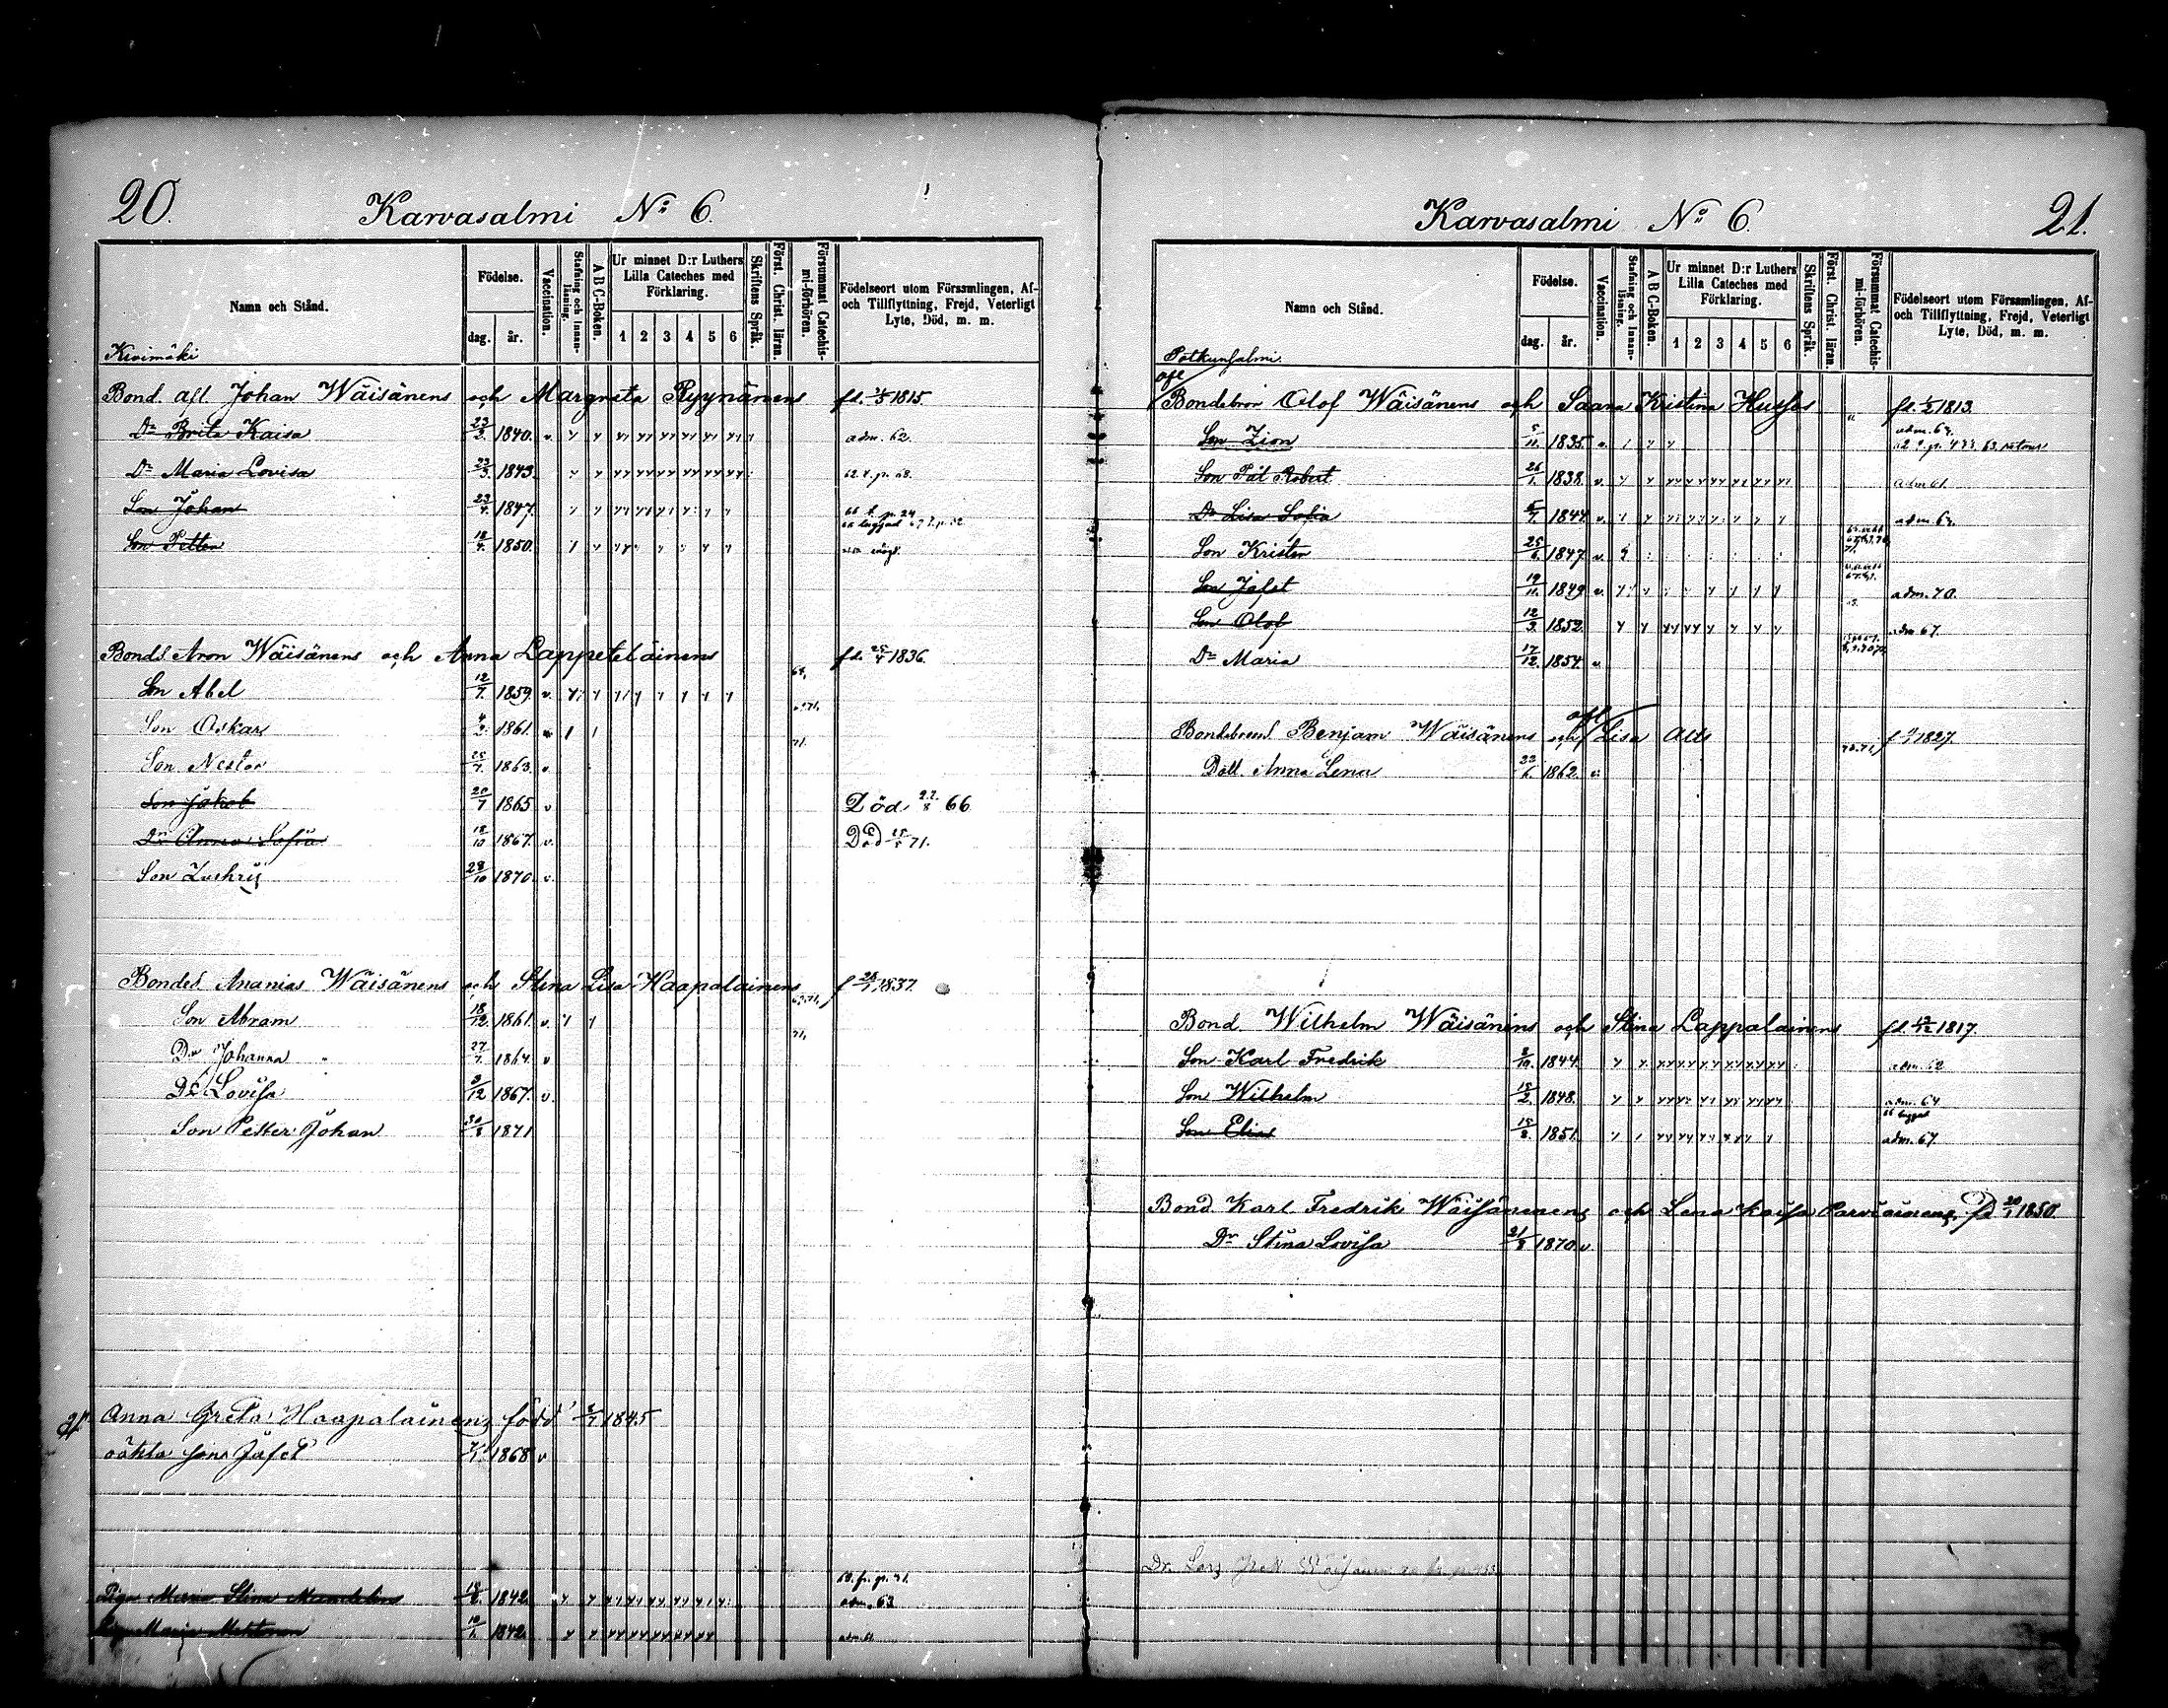 20.
Karvasalmi No 6.
Namn och Stånd.
Födelse.
dag. år.
Vaccination.
Stafning och Innan-läsning.
A B C-Boken.
Ur minnet D:r Luthers Lilla Cateches med Förklaring.
1 2 3 4 5 6
Skriftens Språk.
Först. Christ. läran.
Försummat Catechis-mi-förhören.
Födelseort utom Församlingen, Af- och Tillflyttning, Frejd, Veterligt Lyte, Död, m. m.
Kivimäki
Bond. afl. Johan Wäisänens och Margreta Ryynänens fd. 1815.
Dr Brita Kaisa 23/2. 1840. v. adm. 62.
Dr Maria Lovisa 23/3. 1843. 62. f. p. 68.
Son Johan 23/4. 1847. 66 f. p. 24
Son Petter 18/4. 1850.
Bonds. Aron Wäisänens och Anna Lappeteläinens fd. 25/4 1836.
Son Abel 12/7. 1859. v.
Son Oskar 4/2. 1861. 71.
Son Nestor 25/7. 1863. v
Son Jakob 20/7 1865 v Död 22/8 66
Dr Anna Sofia 18/10 1867. v. Död 71.
Son Zachris 28/10 1870. v.
Bondes. Ananias Wäisänens och Stina Lisa Haapalainens f 1837.
Son Abram 18/12. 1861. v. 71,
Dr Johanna 27/7. 1864. v
Dr Lovisa 9/12 1867. v.
Son Petter Johan 30/8 1871
Anna Greta Haapalainens född 1845
oäkta son Jafet 1868 v
Piga Stina 18/8. 1842. adm. 63
Piga Maria 10/6. 1842.
Karvasalmi No 6.
21.
Namn och Stånd.
Födelse.
dag. år.
Vaccination.
Stafning och Innan-läsning.
A B C-Boken.
Ur minnet D:r Luthers Lilla Cateches med Förklaring.
1 2 3 4 5 6
Skriftens Språk.
Först. Christ. läran.
Försummat Catechis-mi-förhören.
Födelseort utom Församlingen, Af- och Tillflyttning, Frejd, Veterligt Lyte, Död, m. m.
Potkunsalmi.
afl
Bondebror Olof Wäisänens och Saara Kristina Hussos fd. 1/2 1813.
Son Zion 5/11. 1835. v.
Son Pål Robert 26/1. 1838. v. adm 61.
Dr Lisa Sofia 1844. v.
Son Krister 25/6. 1847. v.
Son Jafet 19/11. 1849 v. adm. 70.
Son Olof 12/3. 1852. adm. 67.
Dr Maria 17/12. 1854. v
Bondebrord Benjam Wäisänens och afl Lisa 1827.
Dött. Anna Lena 22/6. 1862. v.
Bond Wilhelm Wäisänens och Stina Lappalainens fd. 1817.
Son Karl Fredrik 2/10. 1844. adm. 62
Son Wilhelm 18/2. 1848. adm. 64
Son Elias 15/8. 1851. adm. 67.
Bond Karl Fredrik Wäisänenens och Lena Kaisa Parviainens fd 20/1 1850.
Dr Stina Lovisa 21/8 1870. v